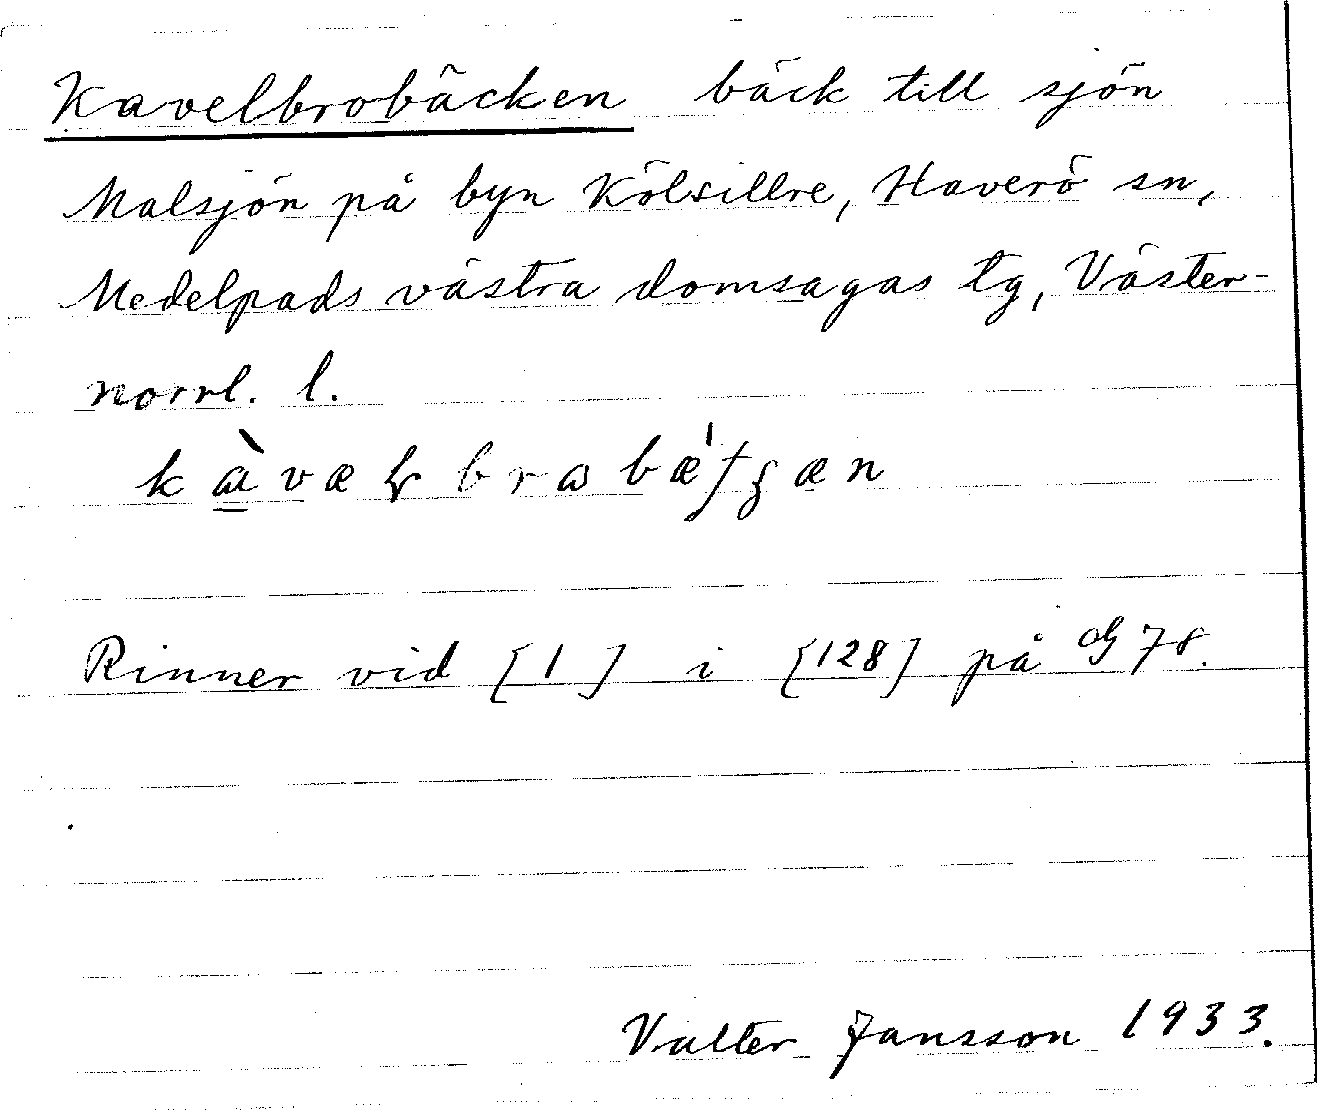 Kavelbrobäcken bäck till sjön
Malsjön på byn Kölsillre, Haverö sn,
Medelpads västra domsagas tg, Väster-
norrl. l.
Rinner vid [1] i [128] på 78.
Valter Jansson 1933.